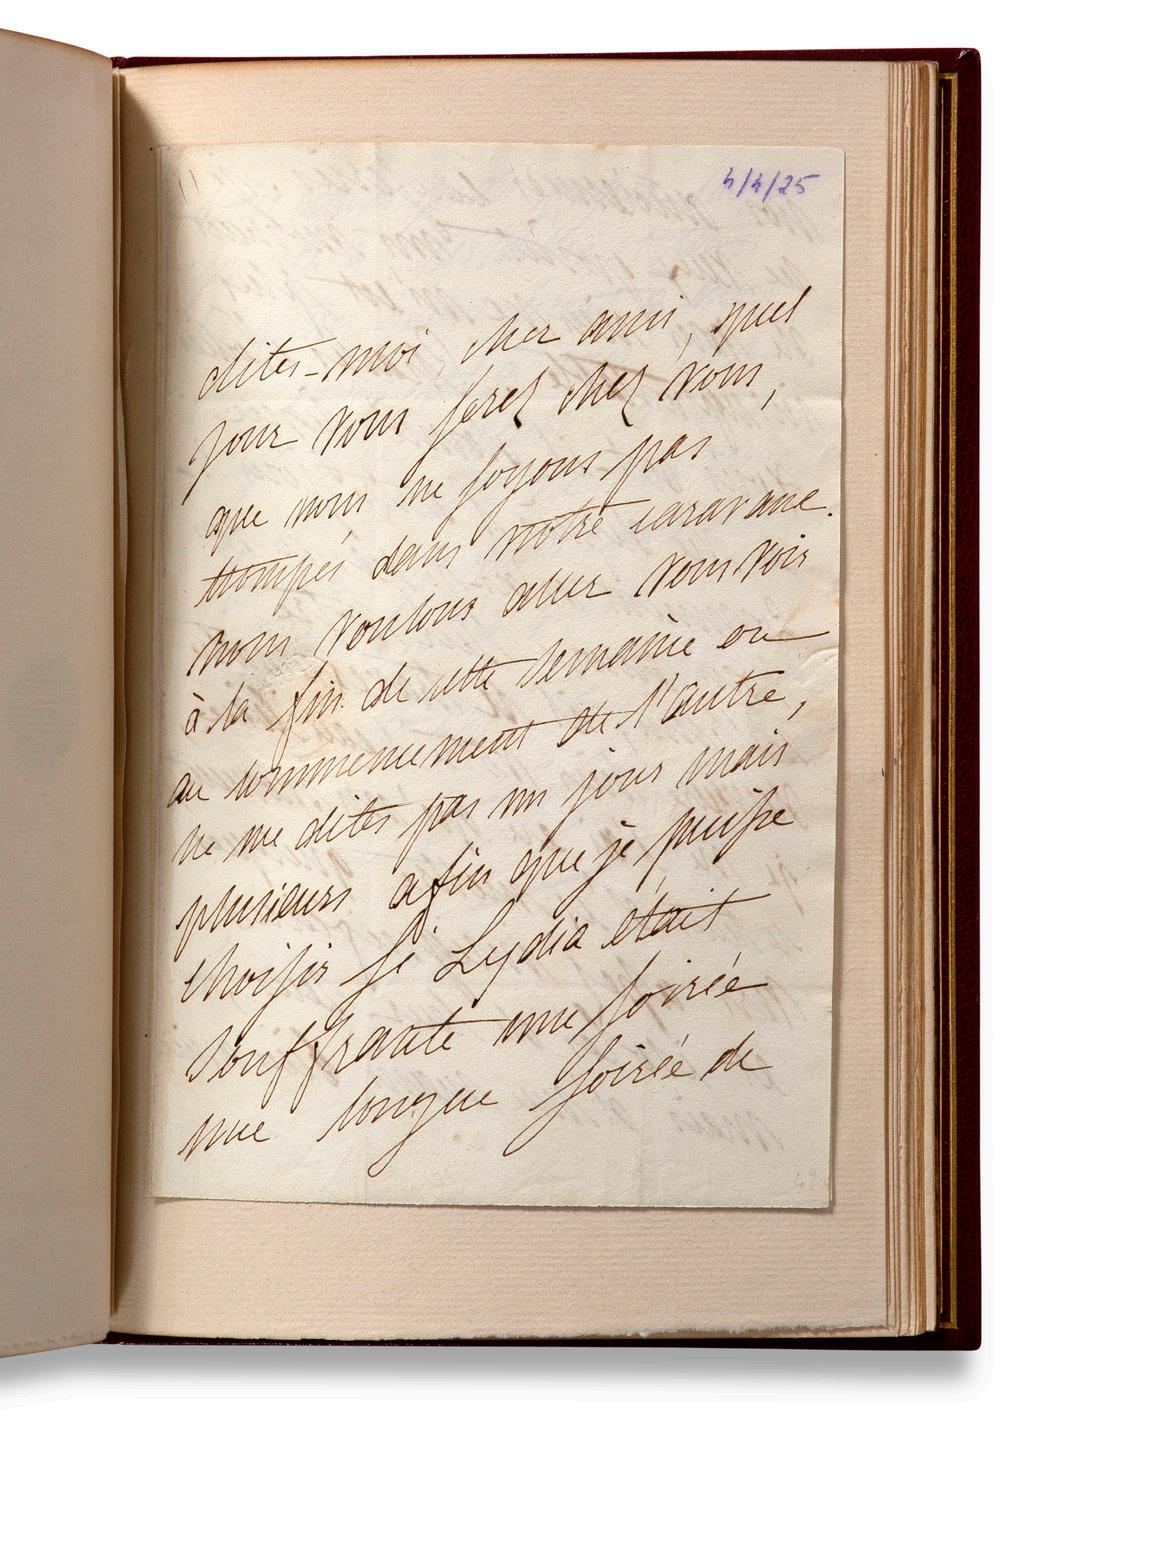 4/4/25
dites-moi, cher ami, quel
jour vous serez chez vous,
que nous ne soyons pas
trompés dans notre caravane.
nous voulons aller vous voir
à la fin de cette semaine ou
au commencement de l'autre,
ne me dites pas un jour mais
plusieurs afin que je puisse
choisir si Lydia était
souffrante une soirée
une longue soirée de